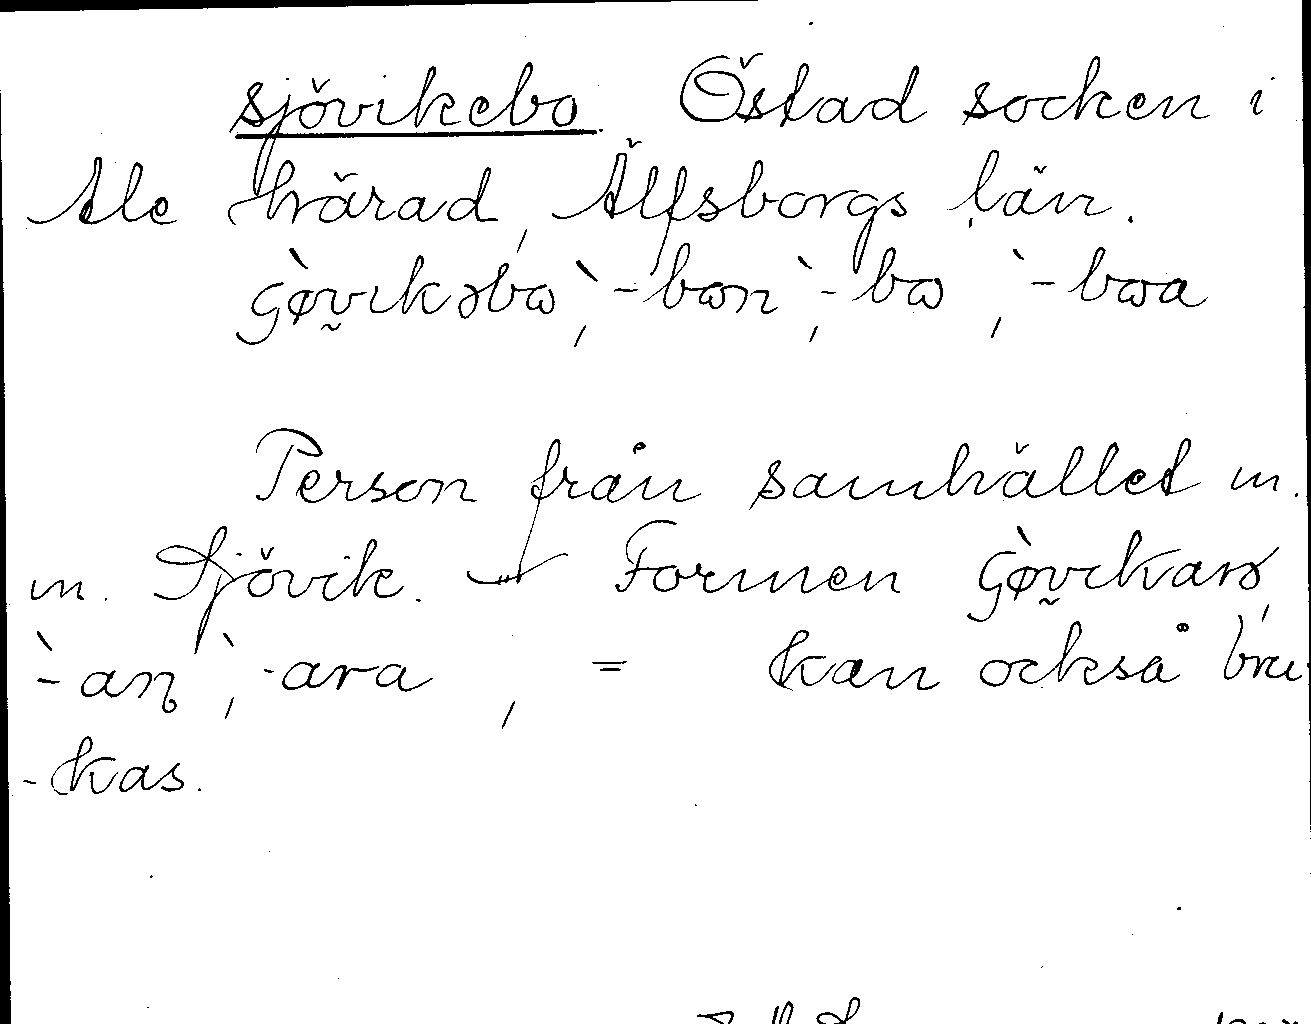 sjövikebo. Östad socken i
Ale härad, Älfsborgs län.
ɕø̀vɩkəbɷ, `-bɷn, `-bɷ, `-bɷa
Person från samhället m.
m. Sjövik. — Formen ɕø̀vɩkarə,
`-aɳ, `-ara, = kan också bru
-kas.